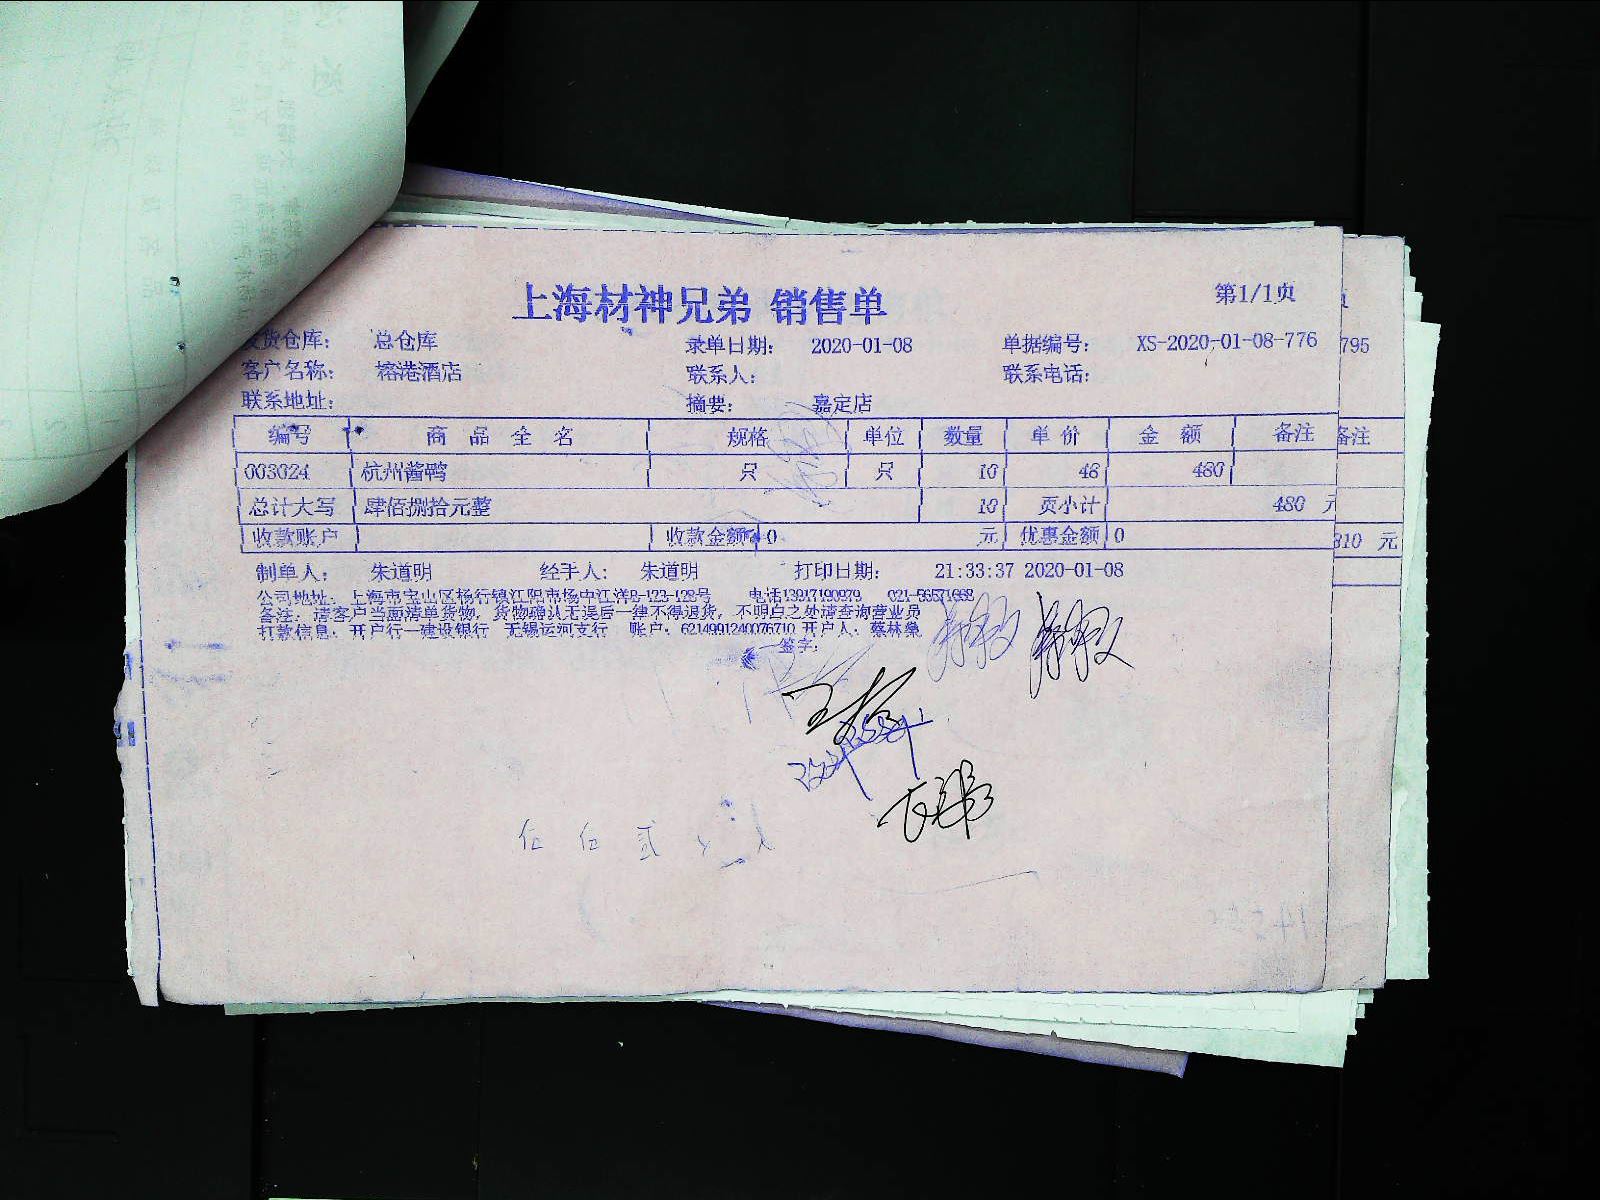 上海材神兄弟 销售单
第1/1页
发货仓库: 总仓库 录单日期: 2020-01-08 单据编号: XS-2020-01-08-776
795
客户名称: 榕港酒店 联系人: 联系电话:
联系地址: 摘要: 嘉定店
编号 商品全名 规格 单位 数量 单价 金额 备注
备注
003024 杭州酱鸭 只 只 10 48 480
总计大写 肆佰捌拾元整 10 页小计 480 元
收款账户 收款金额 0 元 优惠金额 0
310 元
制单人: 朱道明 经手人: 朱道明 打印日期: 21:33:37 2020-01-08
公司地址: 上海市宝山区杨行镇江阳市场中江洋B-123-128号 电话13917190979 021-56571668
备注: 请客户当面清单货物, 货物确认无误后一律不得退货, 不明白之处请查询营业员
打款信息: 开户行—建设银行 无锡运河支行 账户: 6214991240076710 开户人: 蔡林燊
签字:
伍 佰 贰